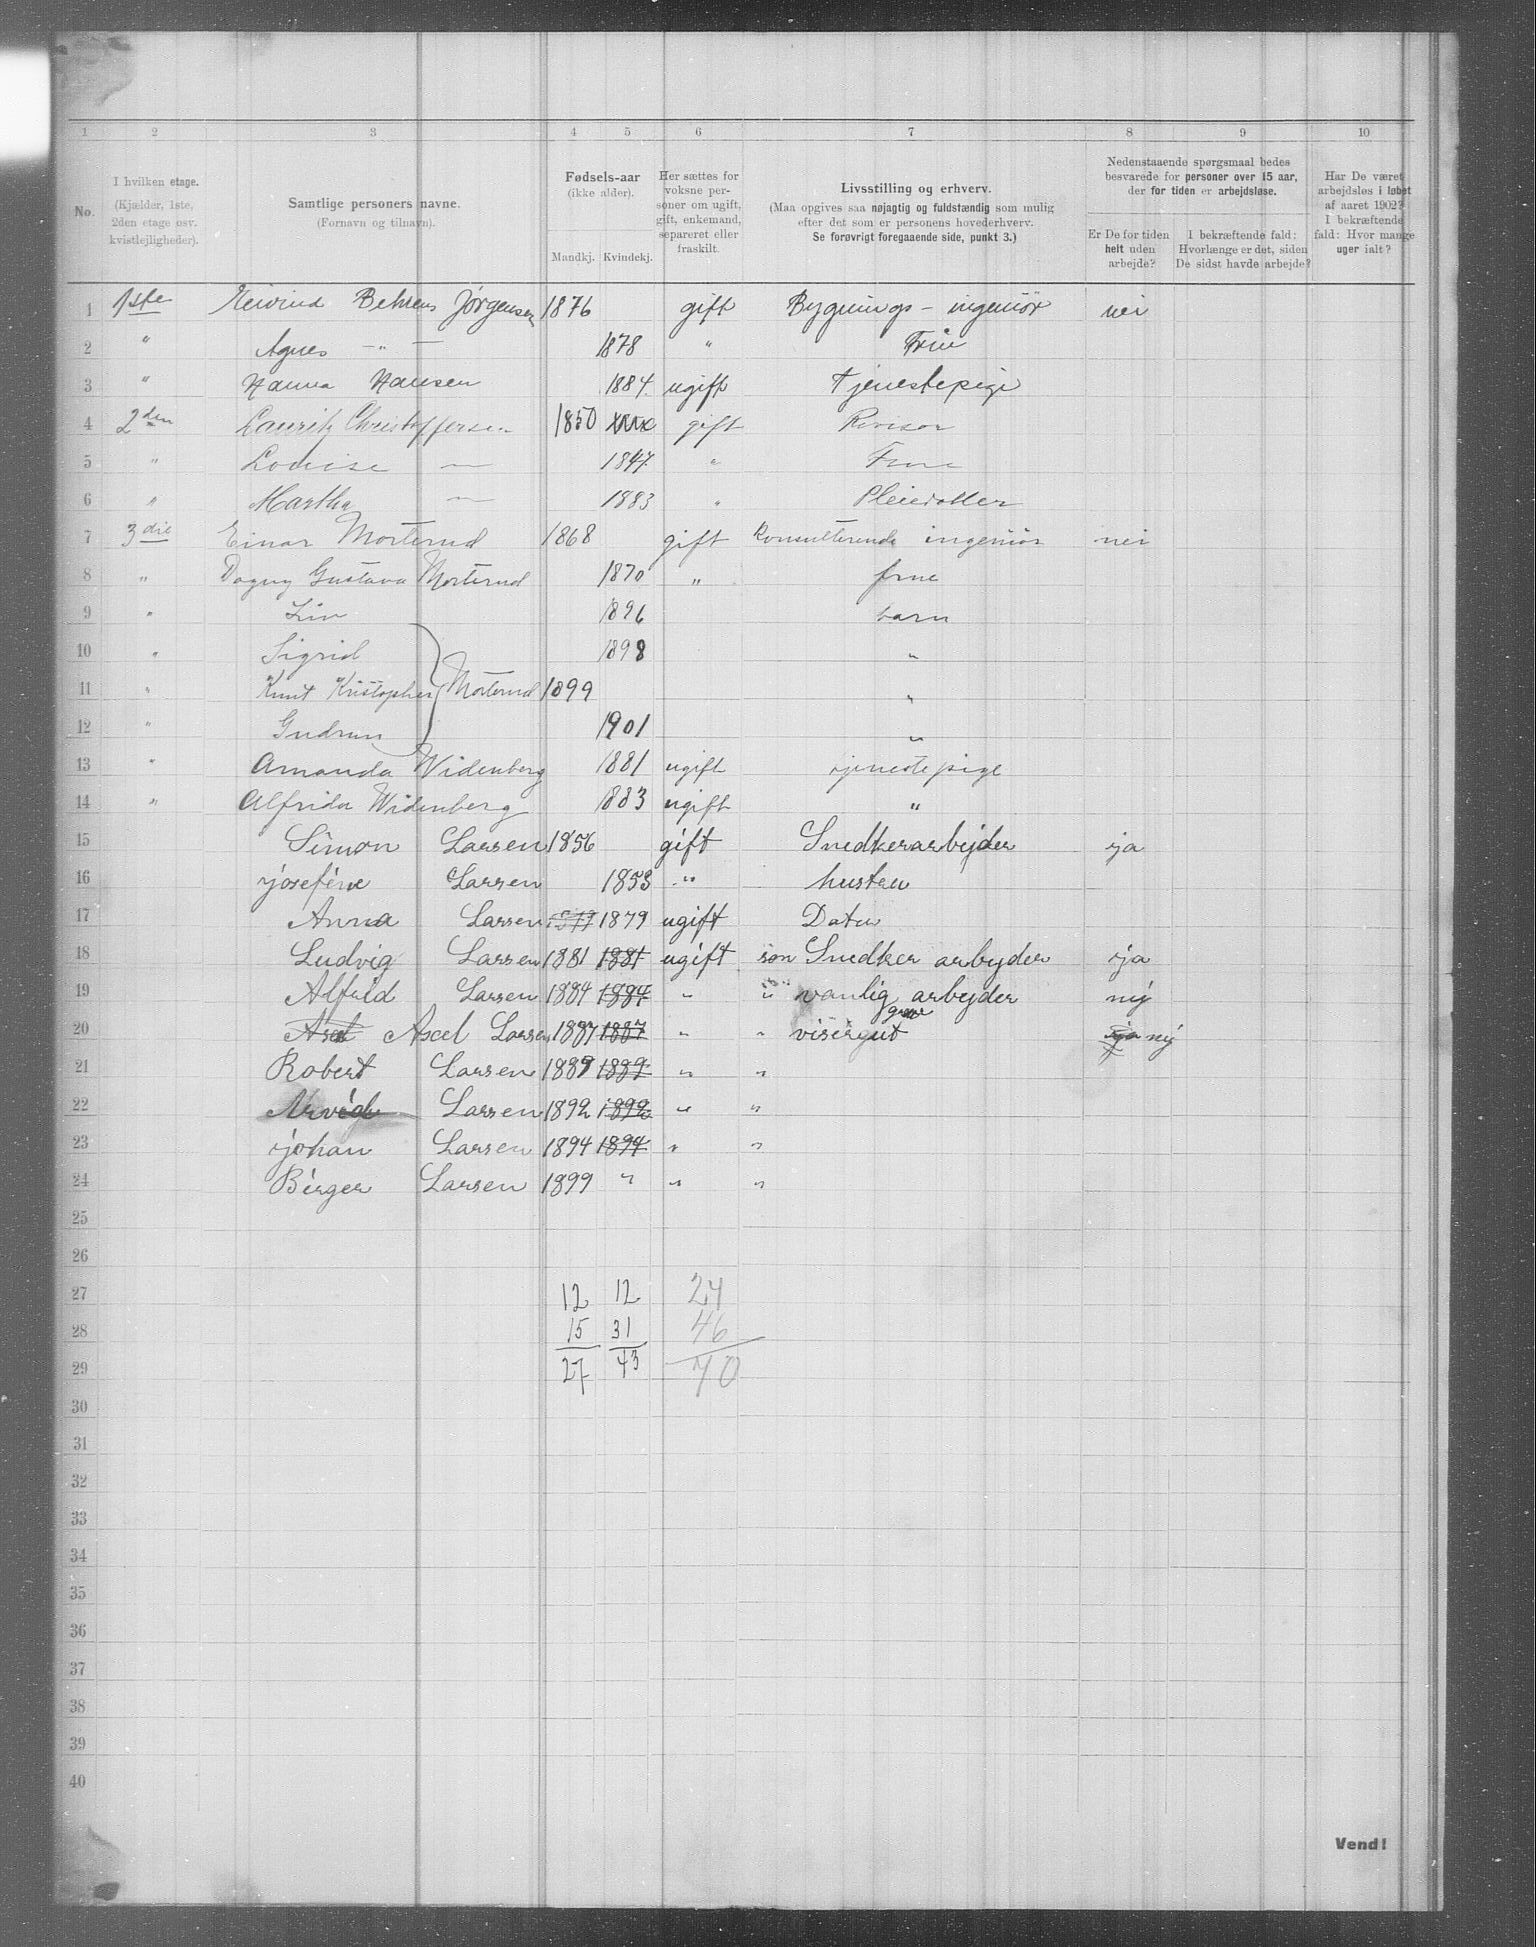 1 2 3 4 5 6 7 8 9 10
No.
I hvilken etage. (Kjælder, 1ste, 2den etage osv. kvistlejligheder).
Samtlige personers navne. (Fornavn og tilnavn).
Fødsels-aar (ikke alder). Mandkj. Kvindekj.
Her sættes for voksne personer om ugift, gift, enkemand, separeret eller fraskilt.
Livsstilling og erhverv. (Maa opgives saa nøjagtig og fuldstændig som mulig efter det som er personens hovederhverv. Se forøvrigt foregaaende side, punkt 3.)
Nedenstaaende spørgsmaal bedes besvarede for personer over 15 aar, der for tiden er arbejdsløse.
Er De for tiden helt uden arbejde?
I bekræftende fald: Hvorlænge er det, siden De sidst havde arbejde?
Har De været arbejdsløs i løbet af aaret 1902? I bekræftende fald: Hvor mange uger ialt?
1 1ste Eeivind Behrens Jörgensen 1876 gift Bygnings-ingeniör nei
2 " Agnes -"- 1878 " Frue
3 " Hanna Hansen 1884. ugift Tjenestepige
4 2den Lauritz Christoffersen 1850 gift Revisor
5 " Lovise — 1847 " Frue
6 " Martha — 1883 " Pleiedatter
7 3die Einar Morterud 1868 gift Konsulterende ingeniör nei
8 " Dagny Gustava Morterud 1870 " frue
9 " Liv 1896 barn
10 " Sigrid 1898 "
11 " Knut Kristopher } Morterud 1899 "
12 " Gudrun 1901 "
13 " Amanda Widenberg 1881 ugift tjenestepige
14 " Alfrida Widenberg 1883 ugift "
15 Simon Larsen 1856 gift Snedkerarbejder ja
16 josefine Larsen 1853 " hustru
17 Anna Larsen 1879 1879 ugift Dater
18 Ludvig Larsen 1881 1881 ugift søn Snedker arbejder ja
19 Alfrid Larsen 1884 1884 " " vanlig arbejder nej
20 Axel Axel Larsen 1887 1887 " " visergut ja nej
21 Robert Larsen 1889 1889 " "
22 Arvid Larsen 1892 1892 " "
23 johan Larsen 1894 1894 " "
24 Birger Larsen 1899 " " "
25
26
27 12 12 24
28 15 31 46
29 27 43 70
30
31
32
33
34
35
36
37
38
39
40
Vend!